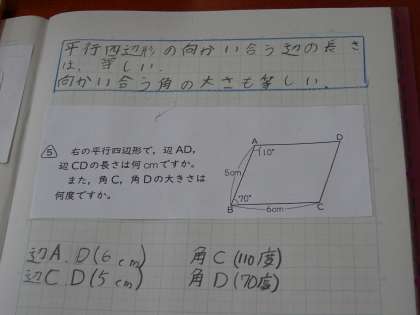 平行四辺形の向かい合う辺の長さ
は、等しい。
向かい合う角の大きさも等しい。
5 右の平行四辺形で，辺AD，
辺CDの長さは何cmですか。
また，角C，角Dの大きさは
何度ですか。
A D
110°
5cm
70°
B 6cm C
辺A.D(6cm) 角C(110度)
辺C.D(5cm) 角D(70度)